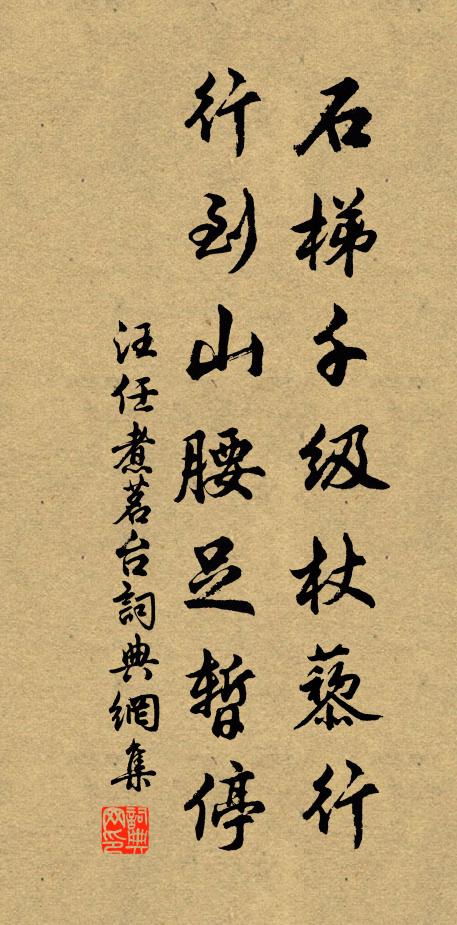 石梯千级杖藜行
行到山腰足暫停
汪任煮茗台詞典網集
詞典网印